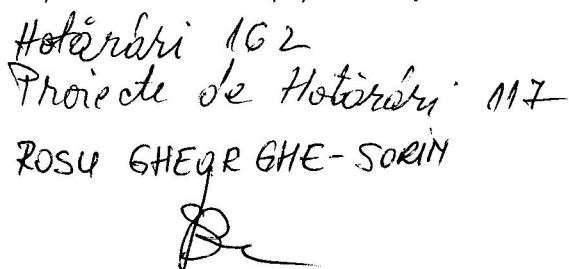 Hotărâri 162
Proiecte de Hotărâri 117
ROSU GHEORGHE-SORIN